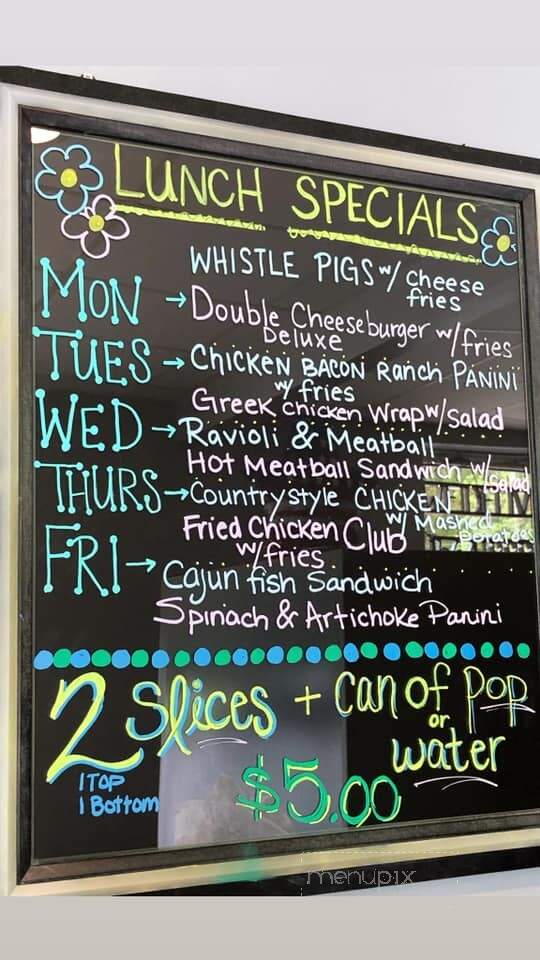 LUNCH SPECIALS
WHISTLE PIGS w/ cheese
fries
MON → Double Cheeseburger w/fries
Deluxe
TUES → CHICKEN BACON Ranch PANINI
w/ fries
Greek chicken Wrap w/salad
WED → Ravioli & Meatball
Hot Meatball Sandwich w/Salad
THURS → Country style CHICKEN
w/ Mashed
Potatoes
Fried Chicken Club
w/fries
FRI → Cajun fish Sandwich
Spinach & Artichoke Panini
2 Slices + Can of Pop
or
water
1 TOP
1 Bottom
$5.00
menupix